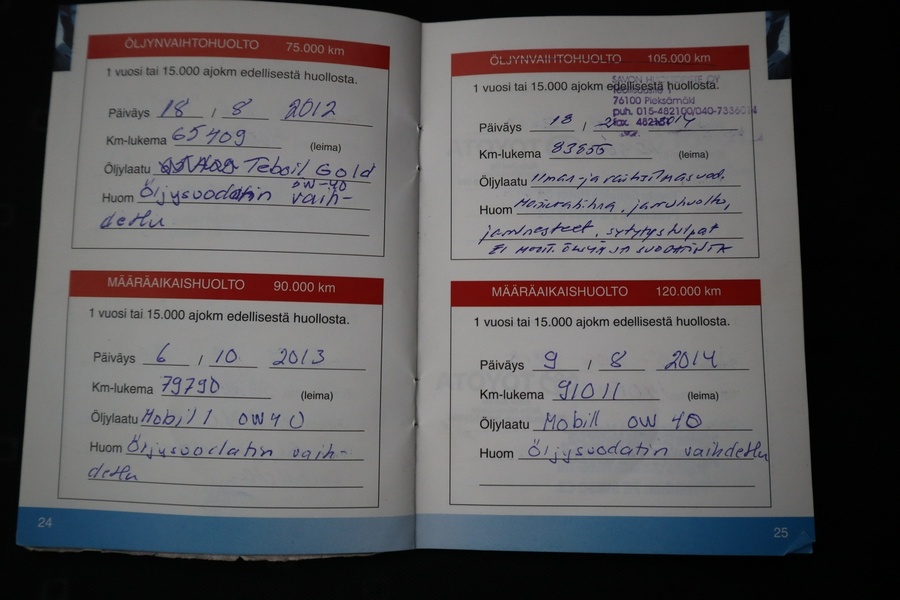 ÖLJYNVAIHTOHUOLTO 75.000 km
1 vuosi tai 15.000 ajokm edellisestä huollosta.
Päiväys 18 / 8 2012
Km-lukema 65409
(leima)
Öljylaatu Teboil Gold
0W-40
Huom Öljysuodatin vaih-
dettu
MÄÄRÄAIKAISHUOLTO 90.000 km
1 vuosi tai 15.000 ajokm edellisestä huollosta.
Päiväys 6 / 10 2013
Km-lukema 79790
(leima)
Öljylaatu Mobil 1 0W40
Huom Öljysuodatin vaih-
dettu
24
ÖLJYNVAIHTOHUOLTO 105.000 km
1 vuosi tai 15.000 ajokm edellisestä huollosta.
76100 Pieksämäki
puh. 015-482100/040-7336014
Päiväys 18 /
Km-lukema 83655
(leima)
Öljylaatu Ilman- ja raitisilmasuod.
Huom jarruhuolto,
jarrunesteet, sytytystulpat
EI MOOT. ÖLJYÄ JA SUODATINTA
MÄÄRÄAIKAISHUOLTO 120.000 km
1 vuosi tai 15.000 ajokm edellisestä huollosta.
Päiväys 9 / 8 2014
Km-lukema 91011
(leima)
Öljylaatu Mobil 1 0W 40
Huom Öljysuodatin vaihdettu
25